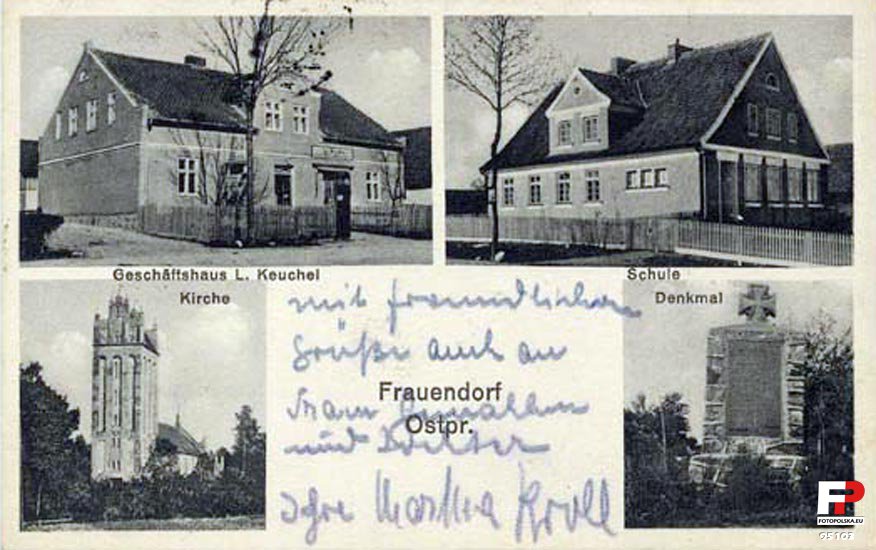 Geschäftshaus L. Keuchel
Schule
Kirche
Denkmal
mit freundlichen
Grüße auch an
Frauendorf
Ostpr.
und
Ihre Martha Kroll
FP
FOTOPOLSKA.EU